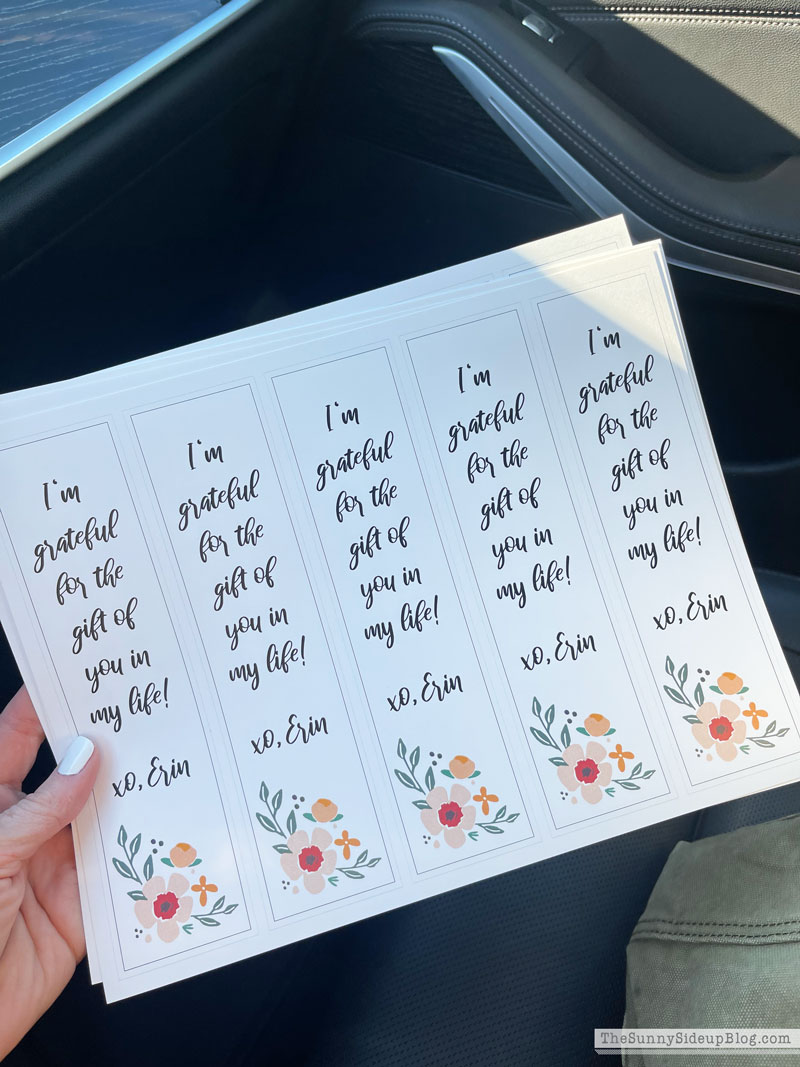 I'm
grateful
for the
gift of
you in
my life!
xo, Erin
I'm
grateful
for the
gift of
you in
my life!
xo, Erin
I'm
grateful
for the
gift of
you in
my life!
xo, Erin
I'm
grateful
for the
gift of
you in
my life!
xo, Erin
I'm
grateful
for the
gift of
you in
my life!
xo, Erin
TheSunnySideupBlog.com